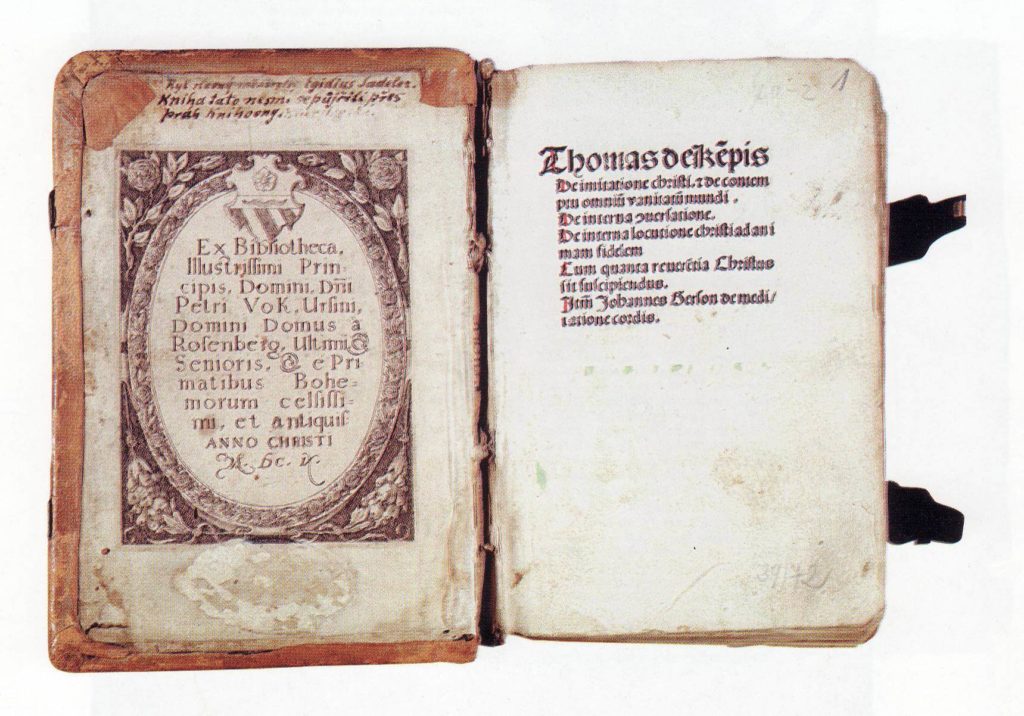 Egidius Sadeler.
Kniha tato nesmí býti půjčena přes
práh knihovny.
Ex Bibliotheca,
Illustrissimi Prin-
cipis, Domini, Dñi
Petri Vok, Ursini,
Domini Domus à
Rosenberg, Ultimi &
Senioris, & e Pri
matibus Bohe-
morum celsissi-
mi, et antiquis
ANNO CHRISTI
M. DC. IX
1
Thomas de kēpis
De imitatione christi. ⁊ de contem
ptu omniū vanitatū mundi.
De interna ↄuersatione.
De interna locutione christi ad ani
mam fidelem
Cum quanta reuerētia Christus
sit suscipiendus.
Itē Johannes Gerson de medi/
tatione cordis.
39172